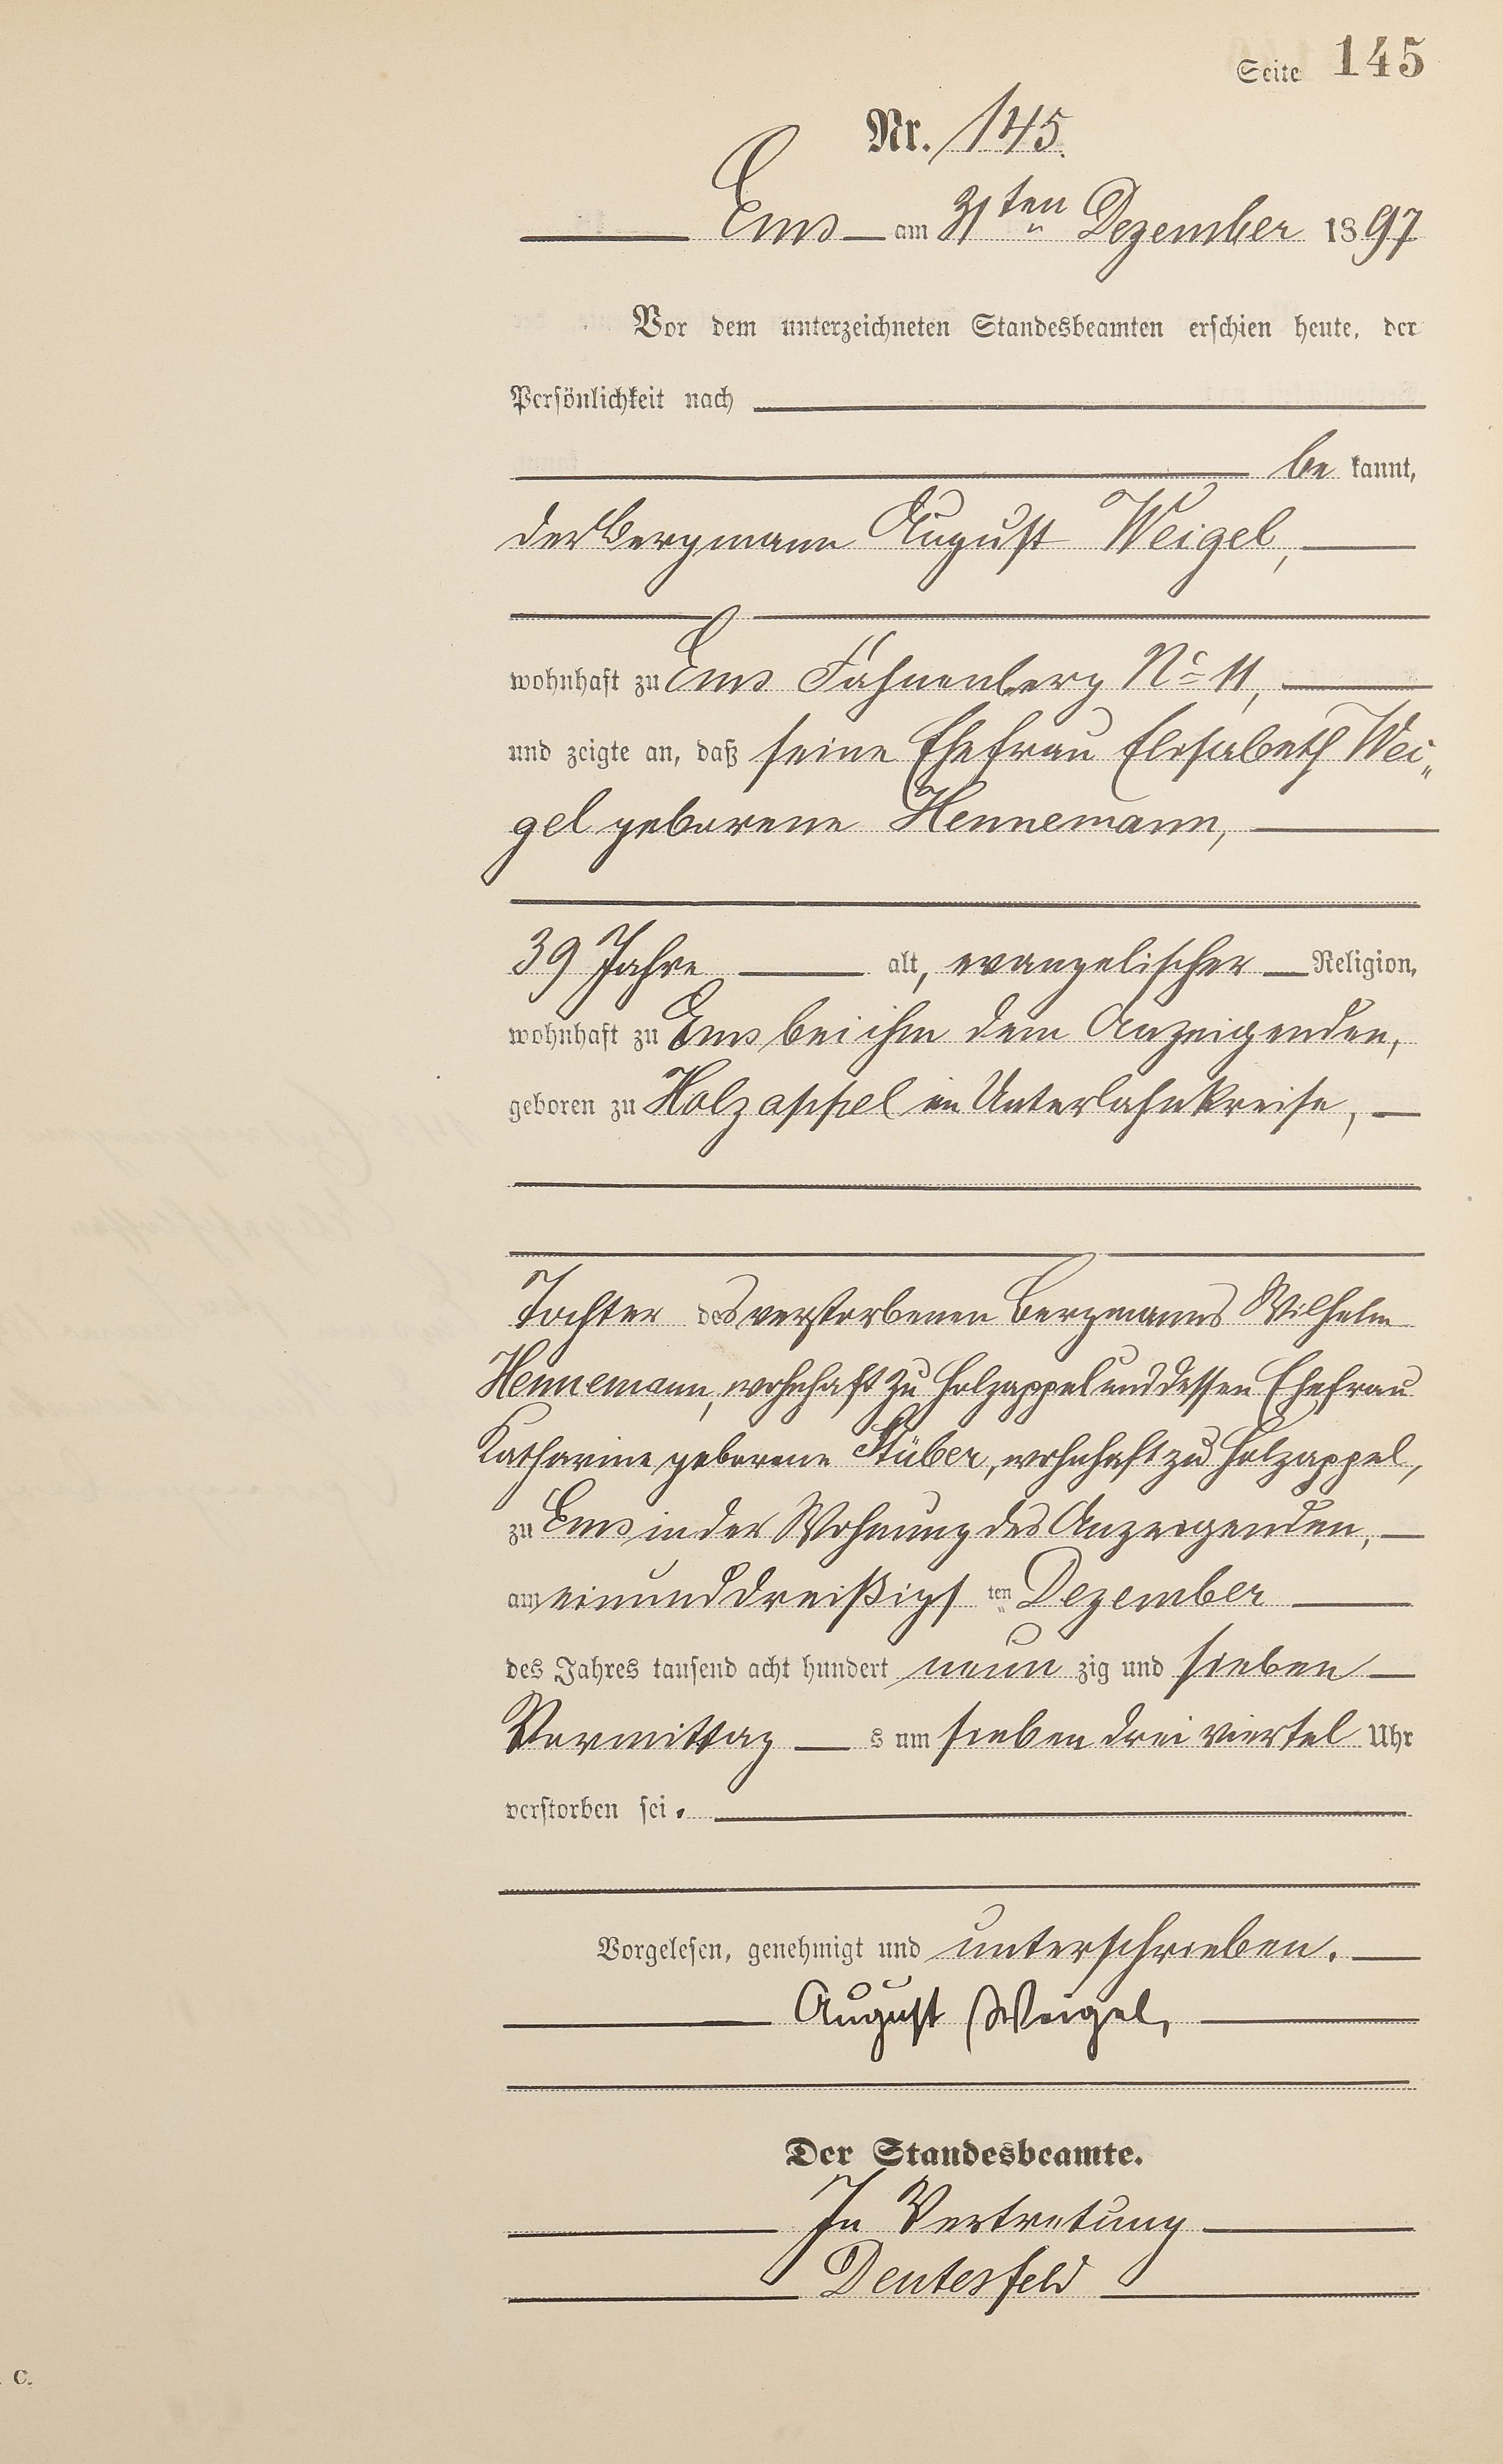 Seite 145
Nr. 145.
Ems am 31ten Dezember 1897
Vor dem unterzeichneten Standesbeamten erschien heute, der
Persönlichkeit nach
be kannt,
der Bergmann August Weigel,
wohnhaft zu Ems Fahnenberg No 11,
und zeigte an, daß seine Ehefrau Elisabeth Wei„
gel geborene Hennemann,
39 Jahre alt, evangelischer Religion,
wohnhaft zu Ems bei ihm dem Anzeigenden,
geboren zu Holzappel im Unterlahnkreise,
Tochter des verstorbenen Bergmanns Wilhelm
Hennemann, wohnhaft zu Holzappel und dessen Ehefrau
Katharine geborene Stüber, wohnhaft zu Holzappel,
zu Ems in der Wohnung des Anzeigenden,
am einunddreißigs ten Dezember
des Jahres tausend acht hundert neun zig und sieben
Vormittag s um sieben drei viertel Uhr
verstorben sei.
Vorgelesen, genehmigt und unterschrieben.
August Weigel,
Der Standesbeamte.
In Vertretung
Deutesfeld
C.